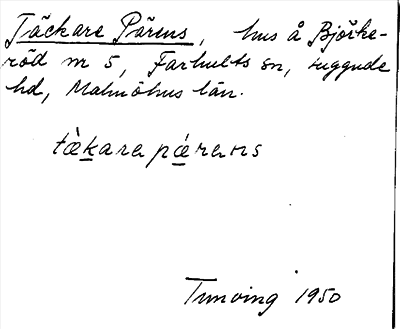 Täckare Pärens, hus å Björke-
röd nr 5, Farhults sn, Luggude
hd, Malmöhus län.
tæ̀kare pǽrens
Tunving 1950